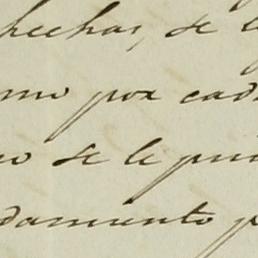 hechas, se l
mo por cad
o se le pu
damiento p